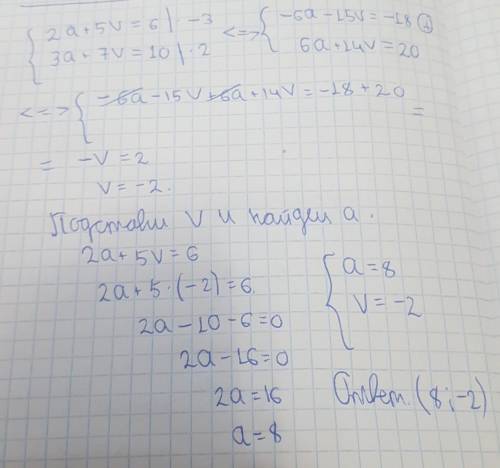 2a + 5v = 6 | · -3 <=> -6a - 15v = -18 (+)
3a + 7v = 10 | · 2 6a + 14v = 20
<=> -6a - 15v + 6a + 14v = -18 + 20 =
= -v = 2
v = -2.
Подставим v и найдем a.
2a + 5v = 6
2a + 5 · (-2) = 6.
2a - 10 - 6 = 0
2a - 16 = 0
2a = 16
a = 8
a = 8
v = -2
Ответ. (8; -2)